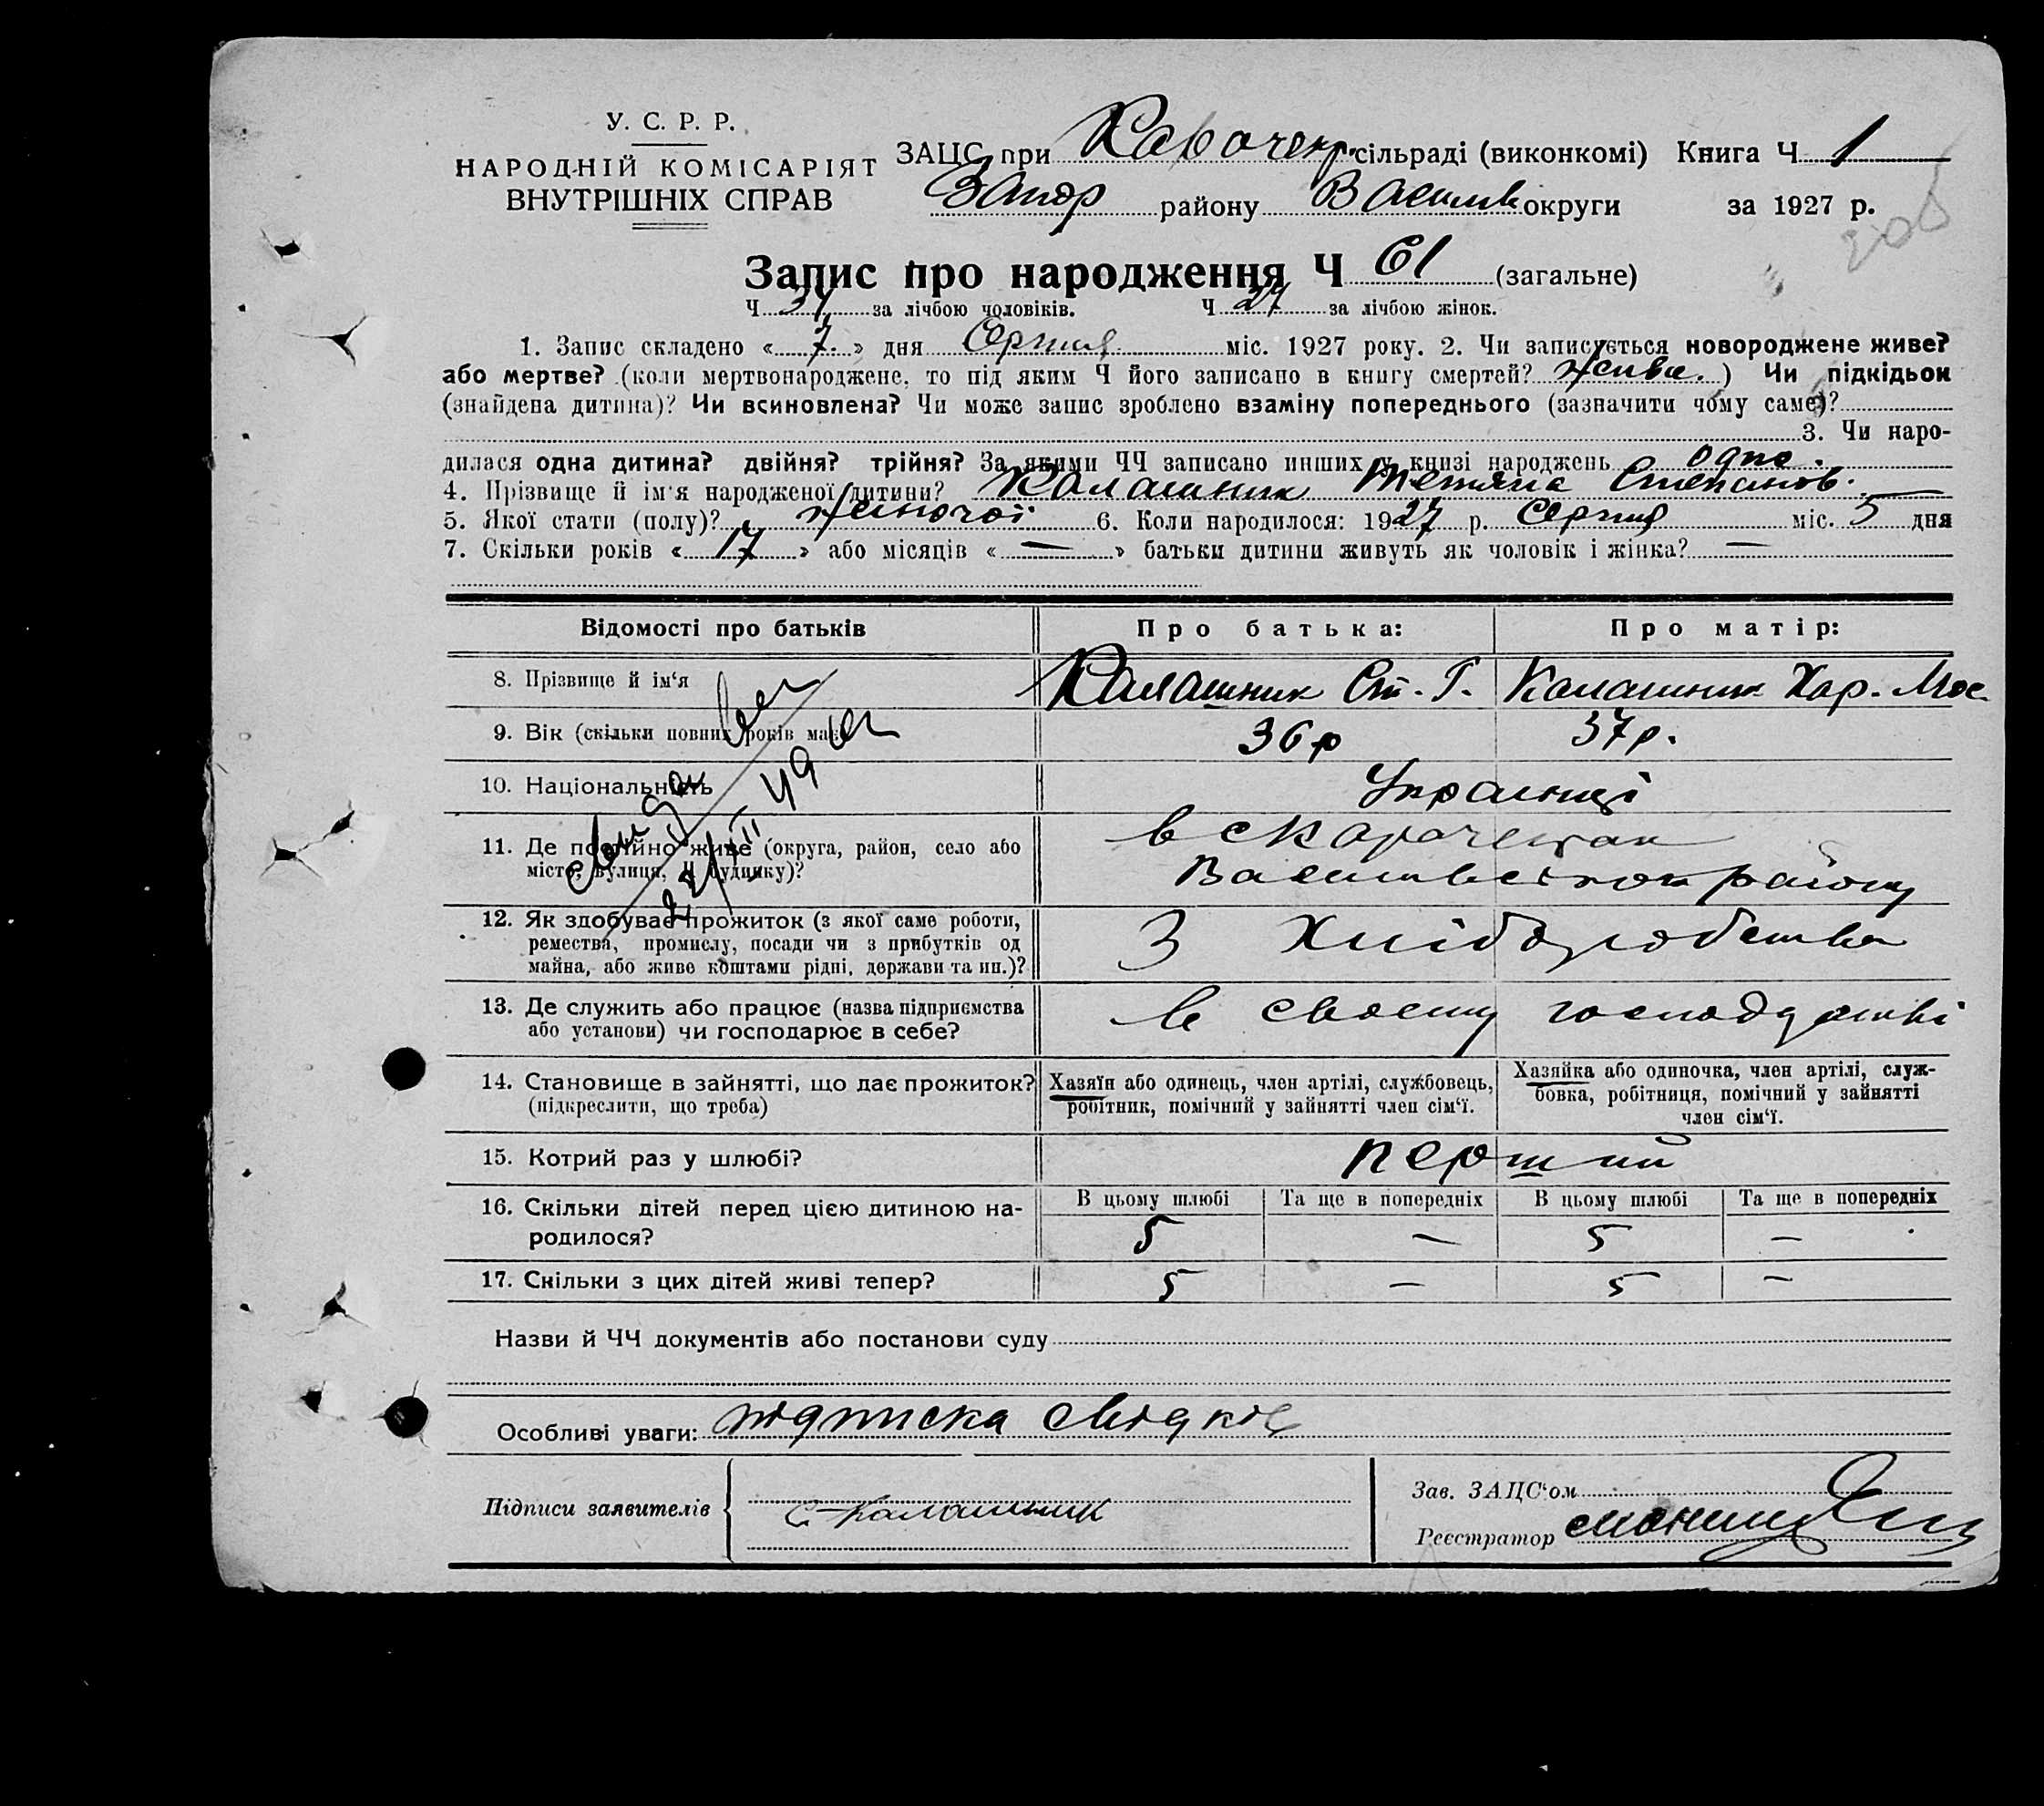 У. С. Р. Р.
НАРОДНІЙ КОМІСАРІЯТ
ВНУТРІШНІХ СПРАВ
ЗАЦС при сільраді (виконкомі) Книга Ч. 1
Запор району Василів округи за 1927 р.
Запис про народження Ч 61 (загальне)
Ч 34 за лічбою чоловіків. Ч 27 за лічбою жінок.
1. Запис складено « 7. » дня Серпня міс. 1927 року. 2. Чи записується новороджене живе?
або мертве? (коли мертвонароджене, то під яким Ч його записано в книгу смертей? живе.) Чи підкідьок
(знайдена дитина)? Чи всиновлена? Чи може запис зроблено взаміну попереднього (зазначити чому саме)?
3. Чи наро-
дилася одна дитина? двійня? трійня? За якими ЧЧ записано инших у книзі народжень одно.
4. Прізвище й ім'я народженої дитини? Калашник Тетяна Степанов.
5. Якої стати (полу)? жіночої 6. Коли народилося: 1927 р. Серпня міс. 5 дня
7. Скільки років « 17 » або місяців « — » батьки дитини живуть як чоловік і жінка? —
Відомості про батьків Про батька: Про матір:
8. Прізвище й ім'я Калашник Ст. Г. Калашник Хар. Мос.
9. Вік (скільки повних років має) 36 р 37 р.
10. Національність Українці
11. Де постійно живе (округа, район, село або
місто, вулиця, Ч будинку)?
Василівського району
12. Як здобуває прожиток (з якої саме роботи,
ремества, промислу, посади чи з прибутків од
майна, або живе коштами рідні, держави та ин.)?
З Хліборобства
13. Де служить або працює (назва підприємства
або установи) чи господарює в себе?
в своєму господарстві
14. Становище в зайнятті, що дає прожиток?
(підкреслити, що треба)
Хазяїн або одинець, член артілі, службовець,
робітник, помічний у зайнятті член сім'ї.
Хазяйка або одиночка, член артілі, служ-
бовка, робітниця, помічний у зайнятті
член сім'ї.
15. Котрий раз у шлюбі? перший
16. Скільки дітей перед цією дитиною на-
родилося?
В цьому шлюбі Та ще в попередніх В цьому шлюбі Та ще в попередніх
5 — 5 —
17. Скільки з цих дітей живі тепер? 5 — 5 —
Назви й ЧЧ документів або постанови суду
Особливі уваги: підписка свідків
Підписи заявителів С Калашник
Зав. ЗАЦС'ом
Реєстратор